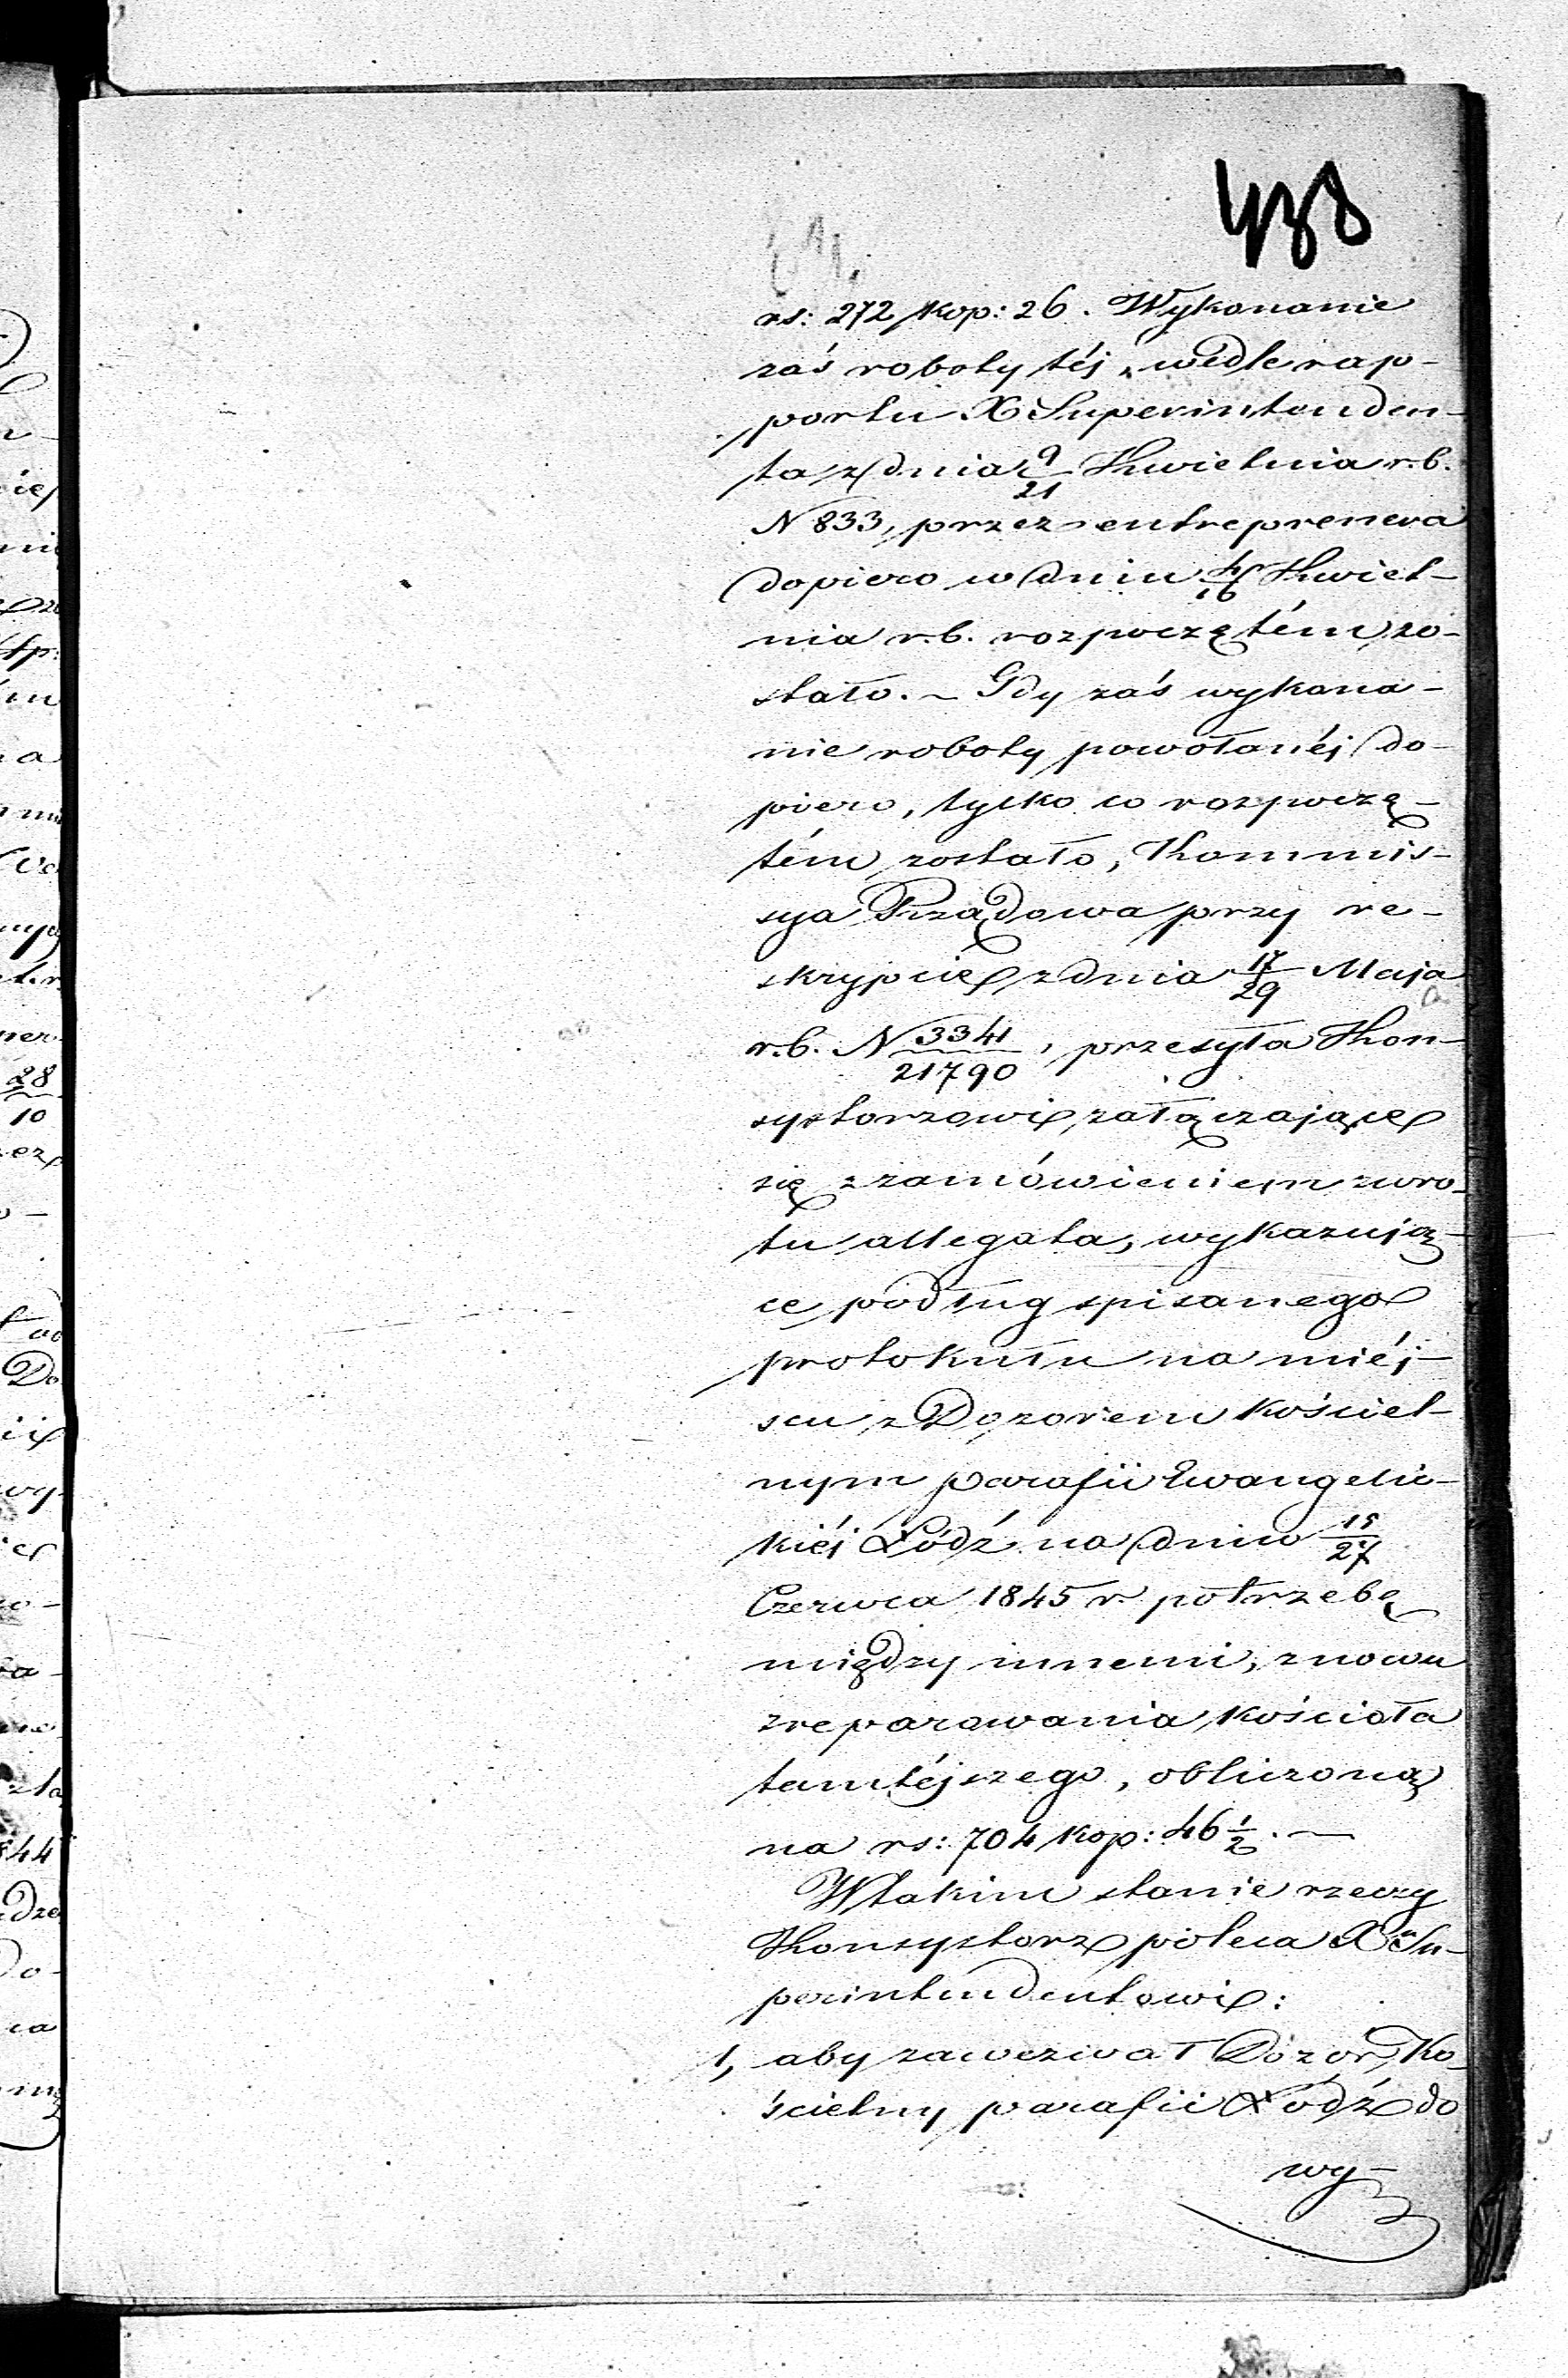 438
rs: 272 kop: 26. Wykonanie
zaś roboty téj, wedle rap-
portu X Superintenden-
ta z dnia 9/21 Kwietnia r.b.
N 833, przez entreprenera
dopiero w dniu 4/16 Kwiet-
nia r.b. rozpoczętém zo-
stało. – Gdy zaś wykona-
nie roboty powołanéj do-
piero, tylko co rozpoczę-
tém zostało, Kommis-
sya Rządowa przy re-
skrypcie z dnia 17/29 Maja
r.b. N 3341/21790, przesyła Kon-
systorzowi załączające
się z zamówieniem zwro-
tu allegata, wykazują-
ce podług spisanego
protokułu na miéj-
scu z Dozorem Kościel-
nym parafii Ewangelic-
kiéj Łódź na dniu 15/27
Czerwca 1845 r potrzebę
między innemi, znowu
zreparowania kościoła
tamtéjszego, obliczoną
na rs: 704 kop: 46 1/2. —
W takim stanie rzeczy
Konsystorz poleca X Su-
perintendentowi:
1, aby zawezwał Dozór Ko-
ścielny parafii Łódź do
wy-